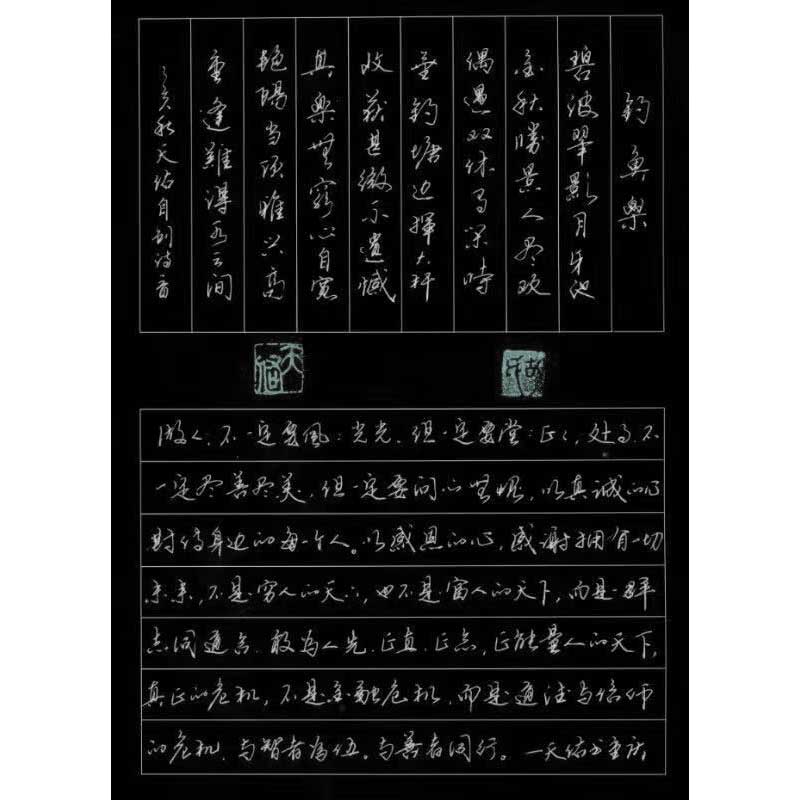 钓鱼乐
碧波翠影月牙池
金秋胜景人尽欢
偶遇双休多闲时
垂钓塘边挥大杆
收获甚微不遗憾
其乐无穷心自宽
艳阳当顶雅兴高
重逢难得云间
亥秋天佑自创诗音
天佑
氏
做人、不一定要风:光光、但一定要堂:正:,处事不
一定尽善尽美,但一定要问心无愧,以真诚的心
对待身边的每一个人。以感恩的心,感谢拥有一切
未来,不是穷人的天下,也不是富人的天下,而是一群
志同道合、敢为人先、正直、正念,正能量人的天下,
真正的危机,不是金融危机,而是道德与信仰
的危机、与智者为伍。与善者同行。一天佑书重庆